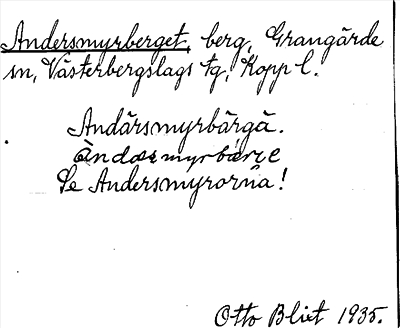 Andersmyrberget, berg, Grangärde
sn, Västerbergslags tg, Kopp l.
Andärsmyrbärgä.
Àndæsmyrbærɛ
Se Andersmyrorna!
Otto Blixt 1935.